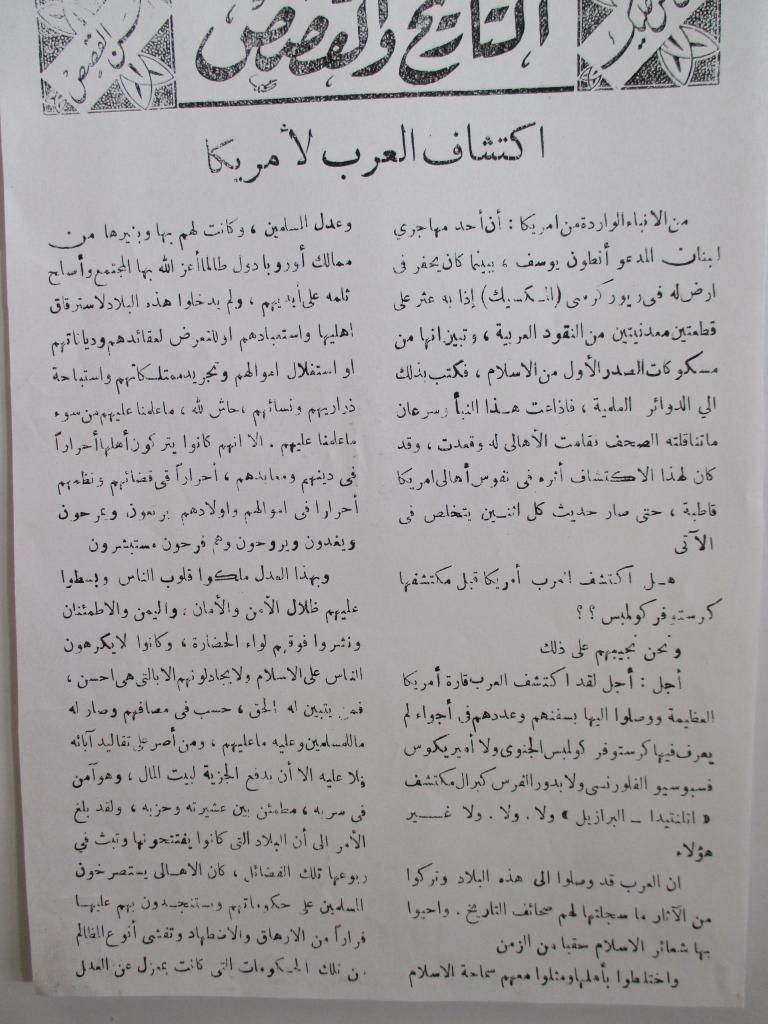 التاريخ والقصص
القصص
اكتشاف العرب لأمريكا
من الانباء الواردة من امريكا : أن أحد مهاجري
لبنان المدعو أنطون يوسف ، بينما كان يحفر فى
ارض له فى ريور كرسى (المكسيك) إذا به عثر على
قطعتين معدنيتين من النقود العربية ، وتبين انها من
مسكوكات الصدر الأول من الاسلام ، فكتب بذلك
الي الدوائر العلمية ، فاذاعت هذا النبأ وسرعان
ماتناقلته الصحف فقامت الأهالى له وقعدت ، وقد
كان لهذا الاكتشاف أثره فى نفوس أهالى امريكا
قاطبة ، حتى صار حديث كل اثنين يتلخص فى
الآتى
هل اكتشف العرب أمريكا قبل مكتشفها
كرستوفر كولمبس ؟ ؟
ونحن نجيبهم على ذلك
أجل : أجل لقد اكتشف العرب قارة أمريكا
العظيمة ووصلوا اليها بسفنهم وعددهم فى أجواء لم
يعرف فيها كرستوفر كولمبس الجنوى ولا أميريكوس
فسبوسيو الفلورنسى ولا بدور الفرس كبرال مكتشف
« اتلنتيدا ــ البرازيل » ولا . ولا . ولا غير
هؤلاء
ان العرب قد وصلوا الى هذه البلاد وتركوا
من الآثار ما سجلتها لهم صحائف التاريخ . واحيوا
بها شعائر الاسلام حقبا من الزمن
واختلطوا بأهلها ومثلوا معهم سماحة الاسلام
وعدل المسلمين ، وكانت لهم بها وبغيرها من
ممالك أوروبا دول طالما أعز الله بها المجتمع وأصلح
ثلمه على أيديهم ، ولم يدخلوا هذه البلاد لاسترقاق
اهليها واستعبادهم او للتعرض لعقائدهم ودياناتهم
او استغلال اموالهم وتجريد ممتلكاتهم واستباحة
ذراريهم ونسائهم ، حاش لله ، ماعلمنا عليهم من سوء
ماعلمنا عليهم . الا انهم كانوا يتركون أهلها أحراراً
فى دينهم ومعابدهم ، أحراراً فى قضائهم ونظمهم
أحرارا فى اموالهم واولادهم يرتعون ويمرحون
ويغدون ويروحون وهم فرحون مستبشرون
وبهذا العدل ملكوا قلوب الناس وبسطوا
عليهم ظلال الأمن والأمان ، واليمن والاطمئنان
ونشروا فوقهم لواء الحضارة ، وكانوا لايكرهون
الناس على الاسلام ولا يجادلونهم الا بالتى هى احسن ،
فمن يتبين له الحق ، حسب فى مصافهم وصار له
ماللمسلمين وعليه ماعليهم ، ومن أصر على تقاليد آبائه
فلا عليه الا أن يدفع الجزية لبيت المال ، وهو آمن
فى سربه ، مطمئن بين عشيرته وحزبه ، ولقد بلغ
الأمر الى أن البلاد التى كانوا يفتتحونها وتبث في
ربوعها تلك الفضائل ، كان الاهالى يستصرخون
المسلمين على حكوماتهم ويستنجدون بهم عليها
فراراً من الارهاق والاضطهاد وتفشى أنوع المظالم
من تلك الحكومات التى كانت بمعزل عن العدل